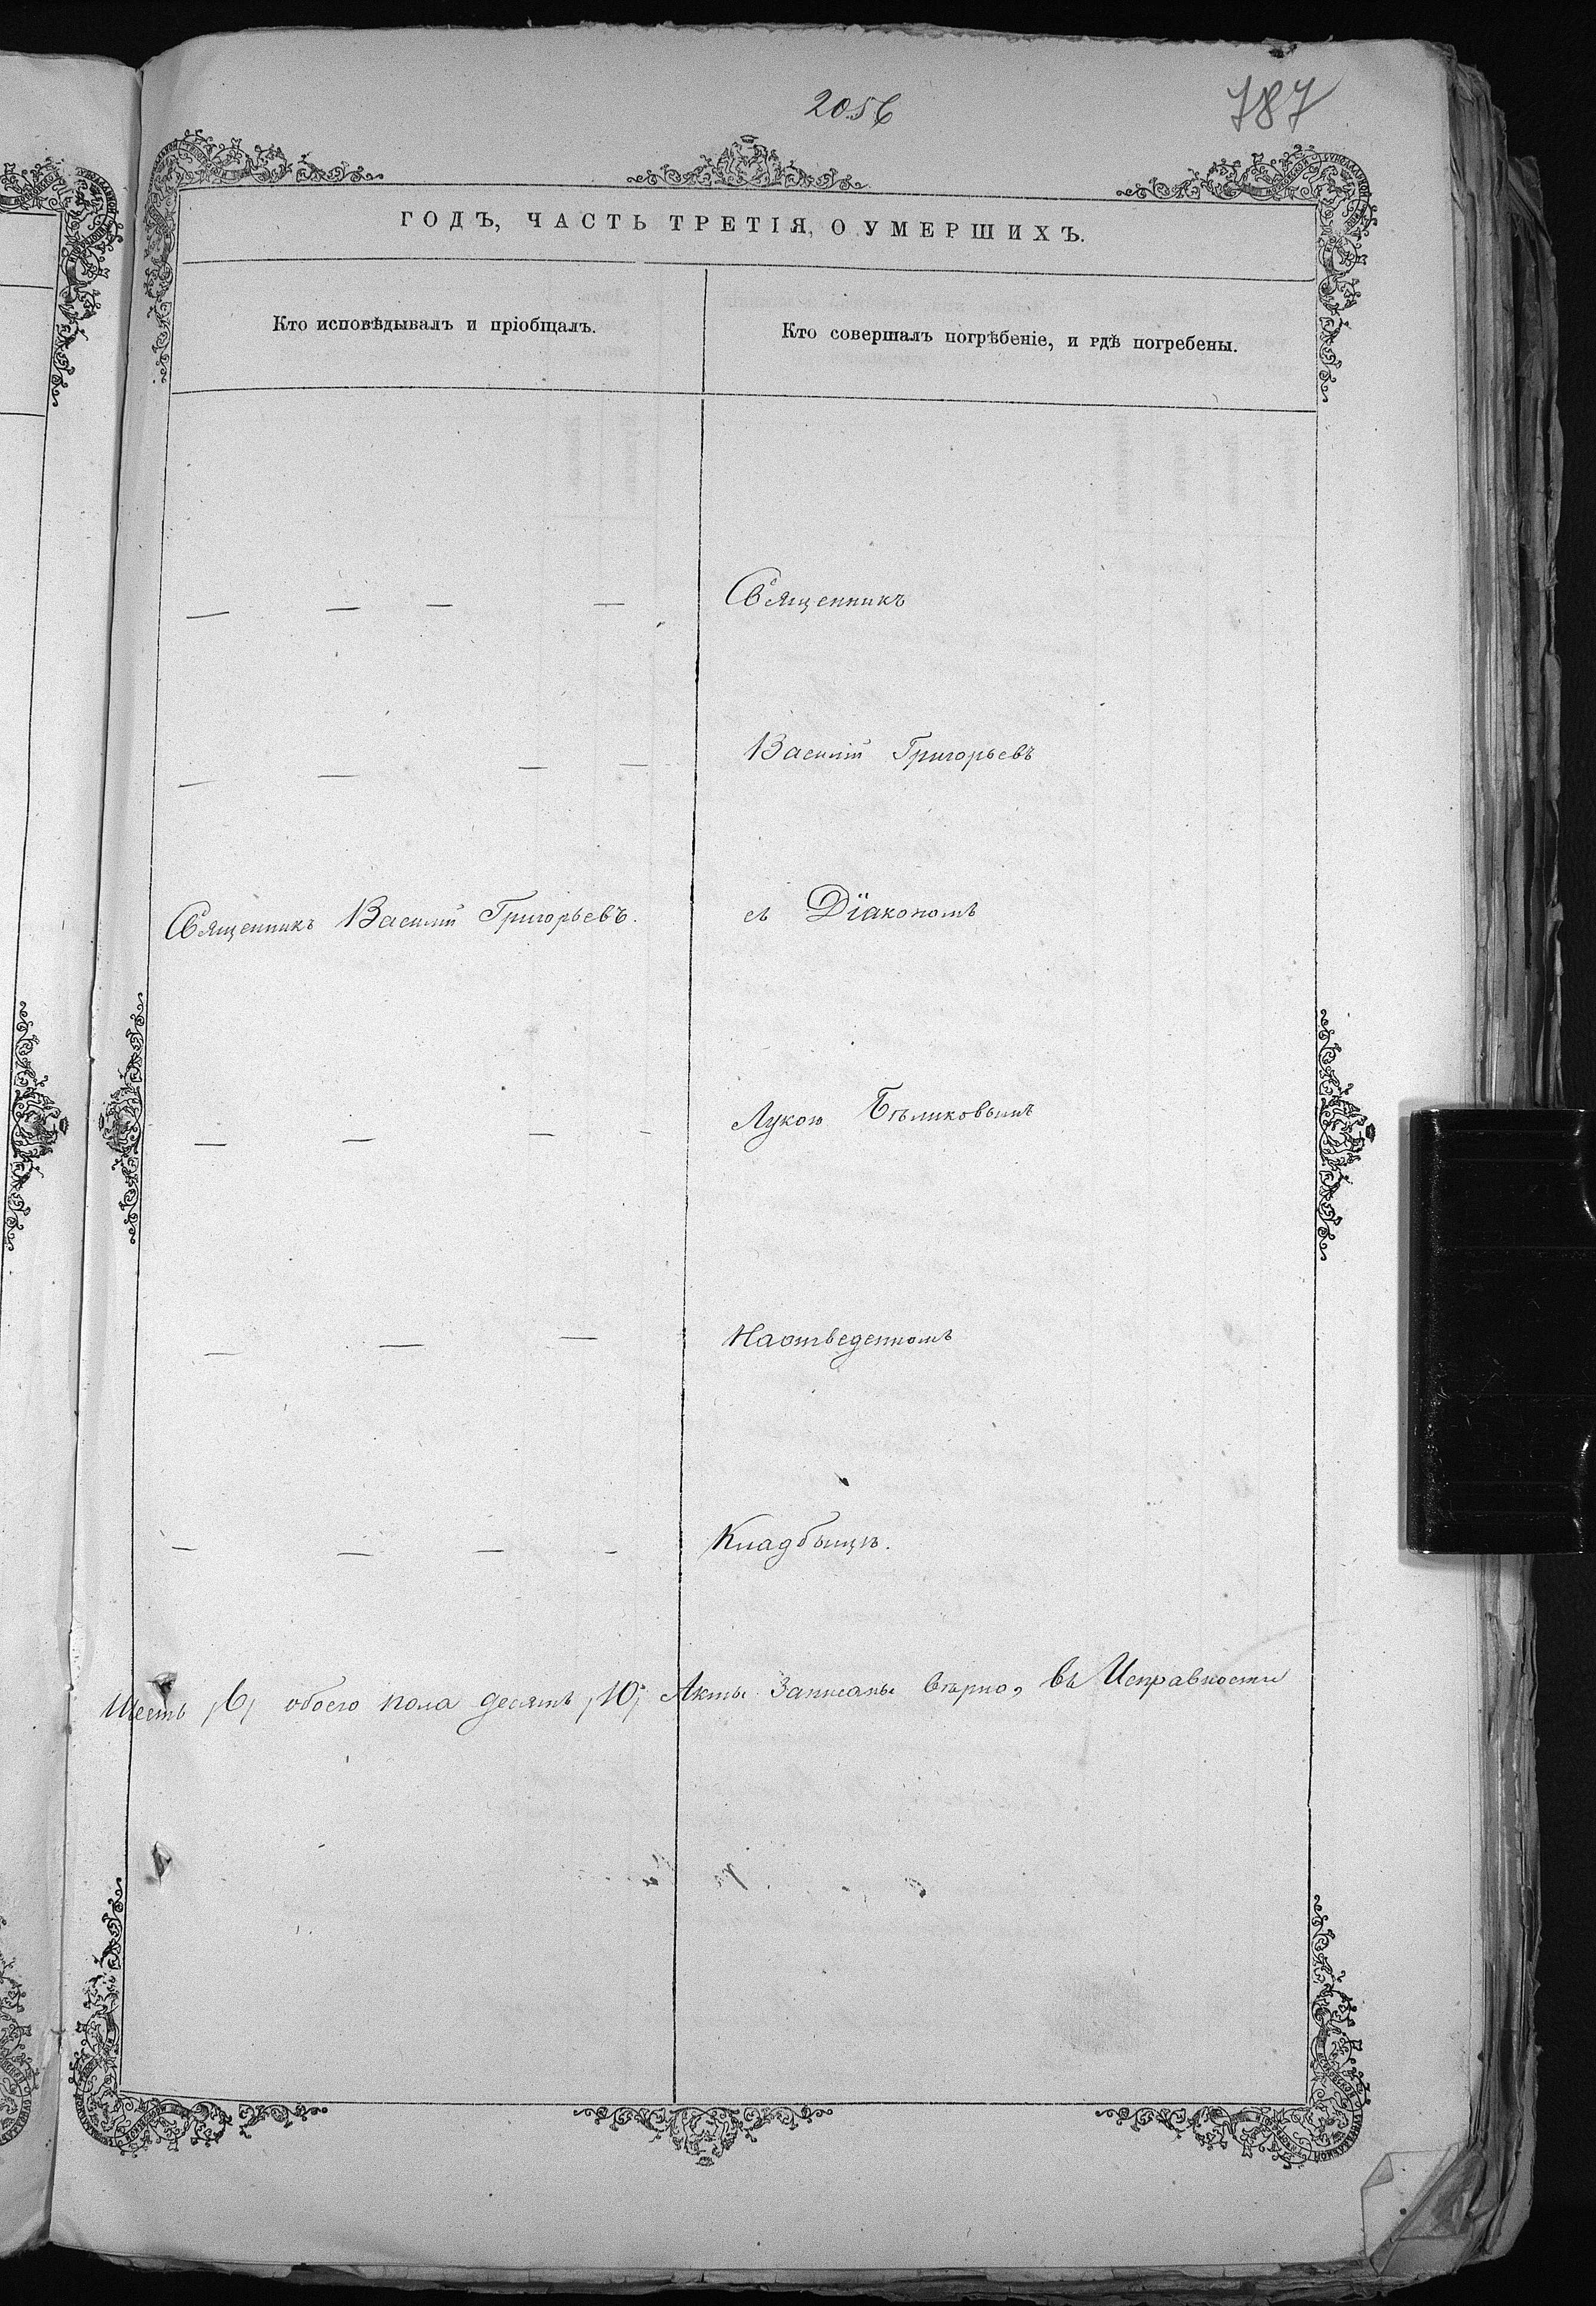 2056
787
ГОДЪ, ЧАСТЬ ТРЕТІЯ, О УМЕРШИХЪ.
Кто исповѣдывалъ и пріобщалъ.
Кто совершалъ погрѣбеніе, и гдѣ погребены.
— — — —
Священникъ
— — — —
Василій Григорьевъ
Священникъ Василій Григорьевъ.
съ Діакономъ
— — — —
Лукою Бѣликовымъ
— — —
Наотведенномъ
— — — —
Кладбыщѣ.
Шесть /6/ обоего пола десять /10/ Акты Записаны вѣрно, въ Исправности